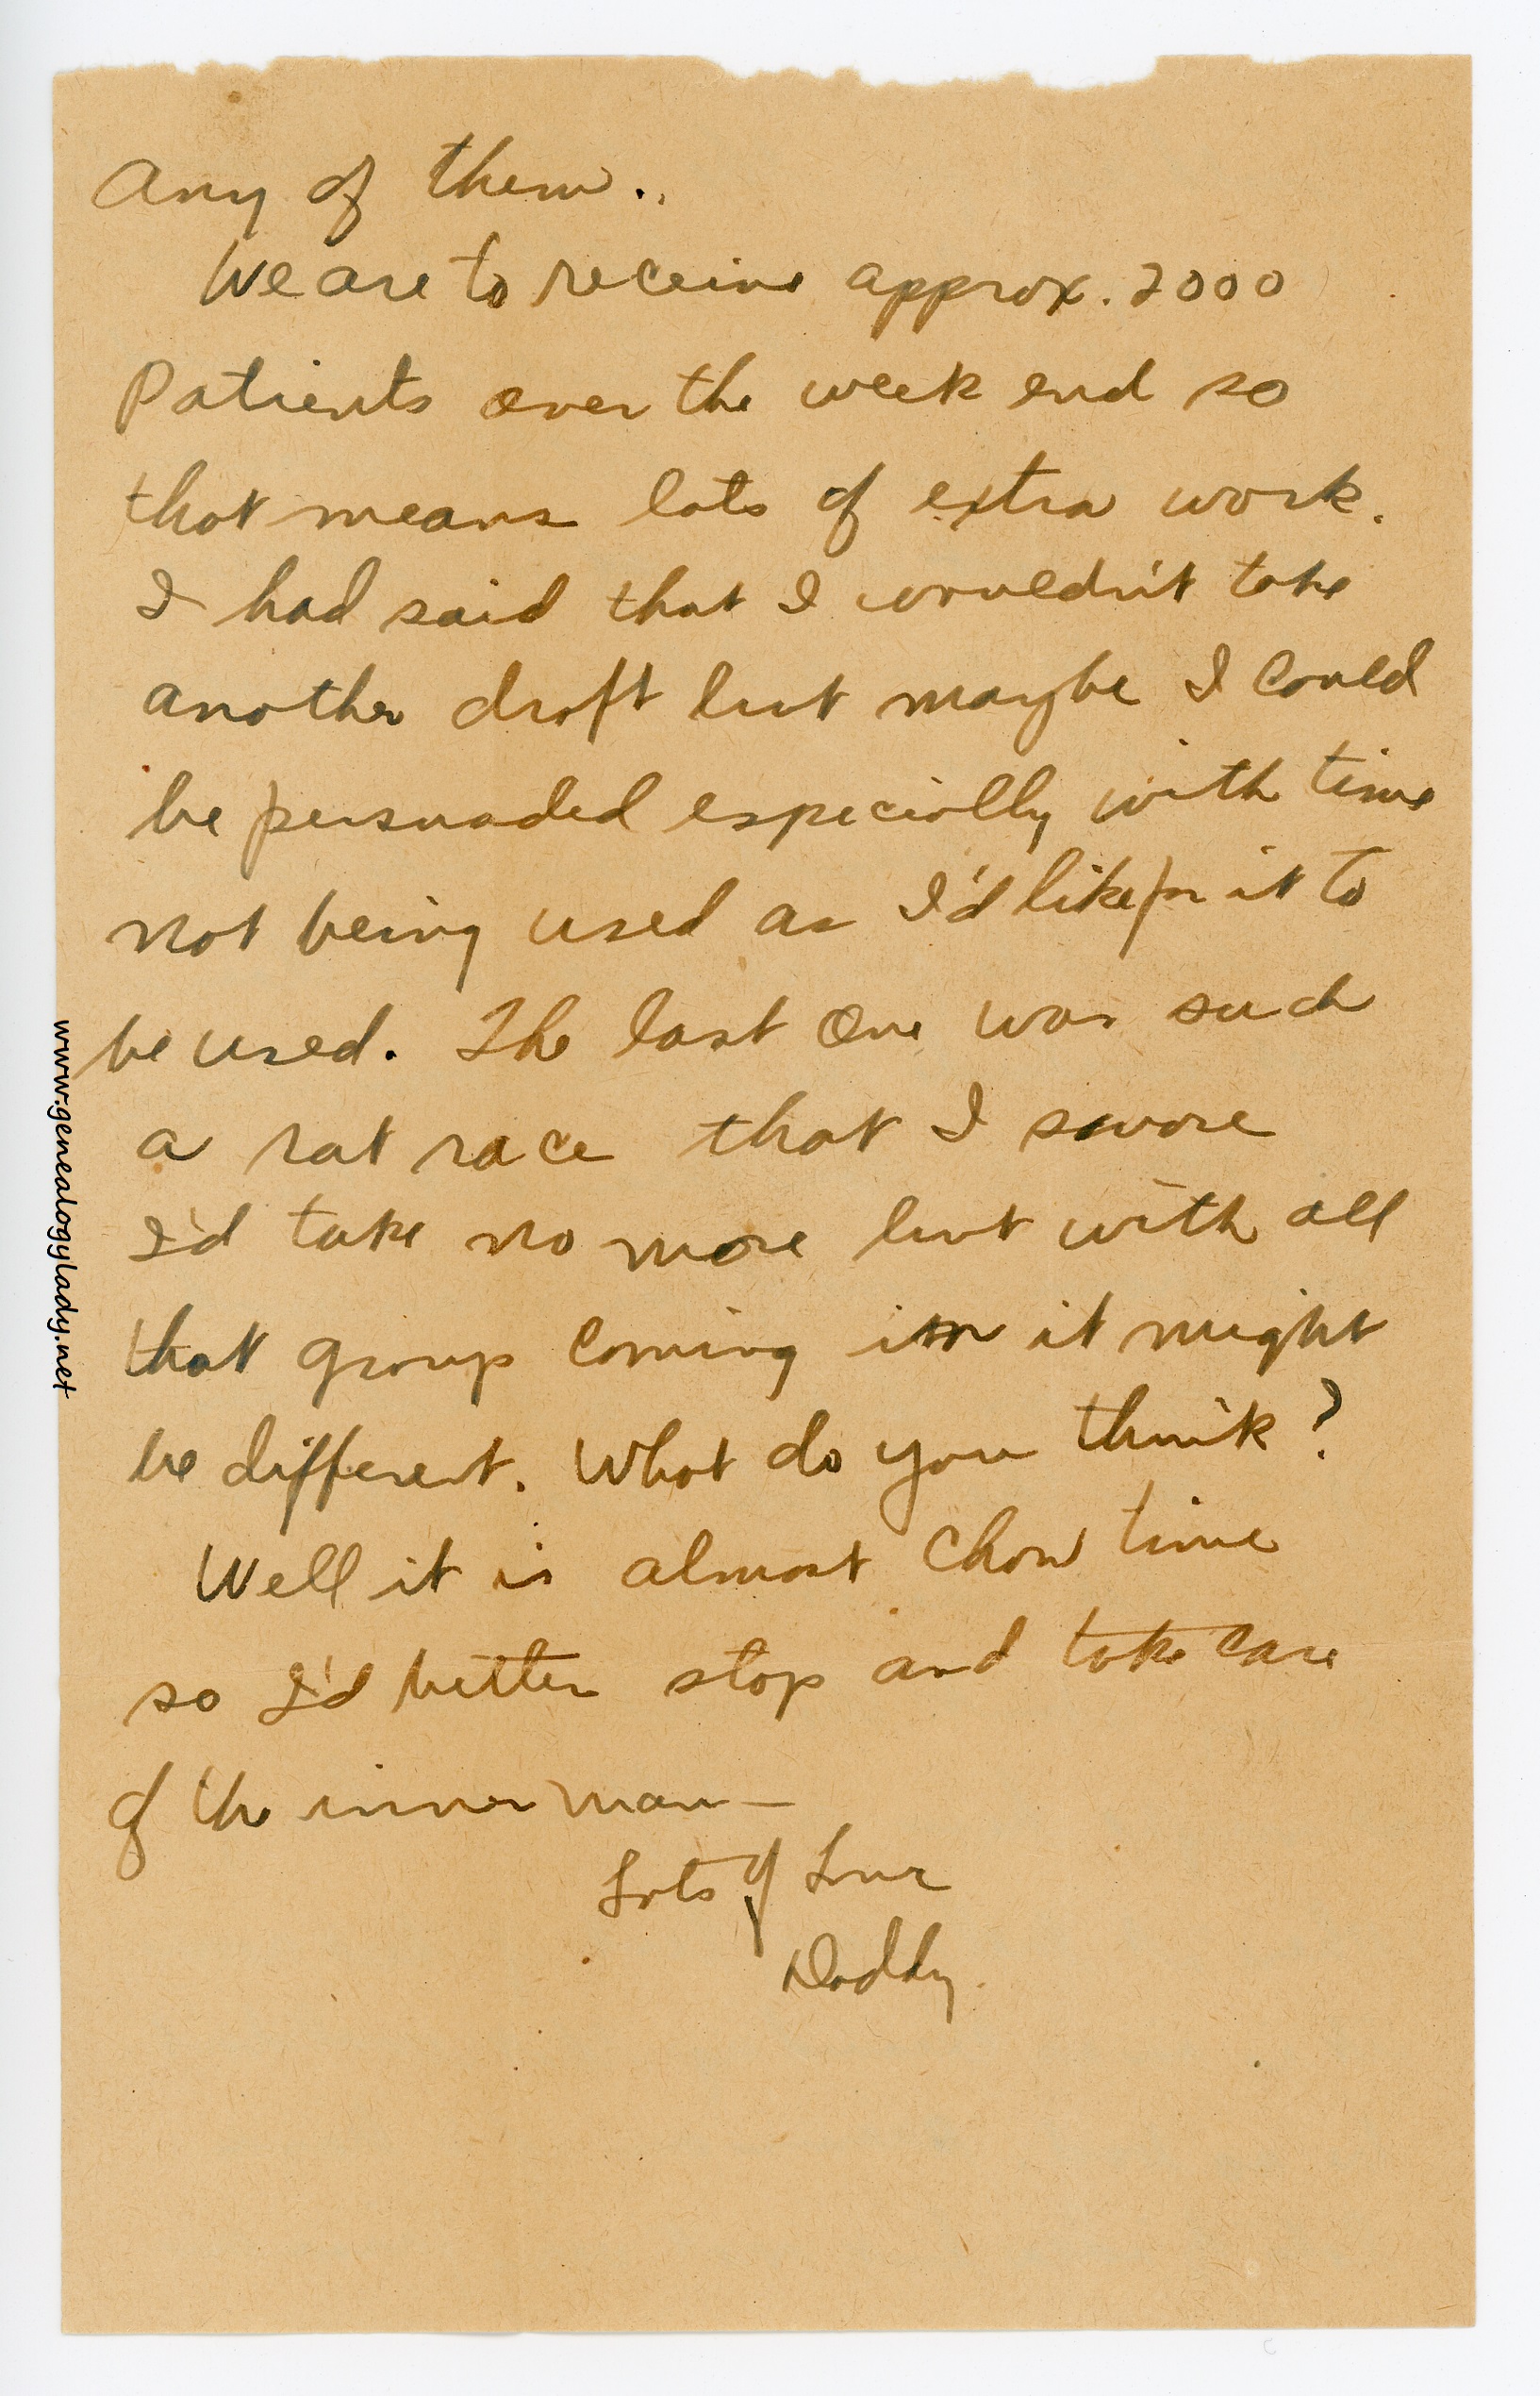 any of them..
We are to receive approx. 2000
Patients over the week end so
that means lots of extra work.
I had said that I wouldn't take
another draft but maybe I could
be persuaded especially with time
not being used as I'd like for it to
be used. The last one was such
a rat race that I swore
I'd take no more but with all
that group coming in it might
be different. What do you think?
Well it is almost chow time
so I'd better stop and take care
of the inner man—
Lots of Love
Daddy.
www.genealogylady.net